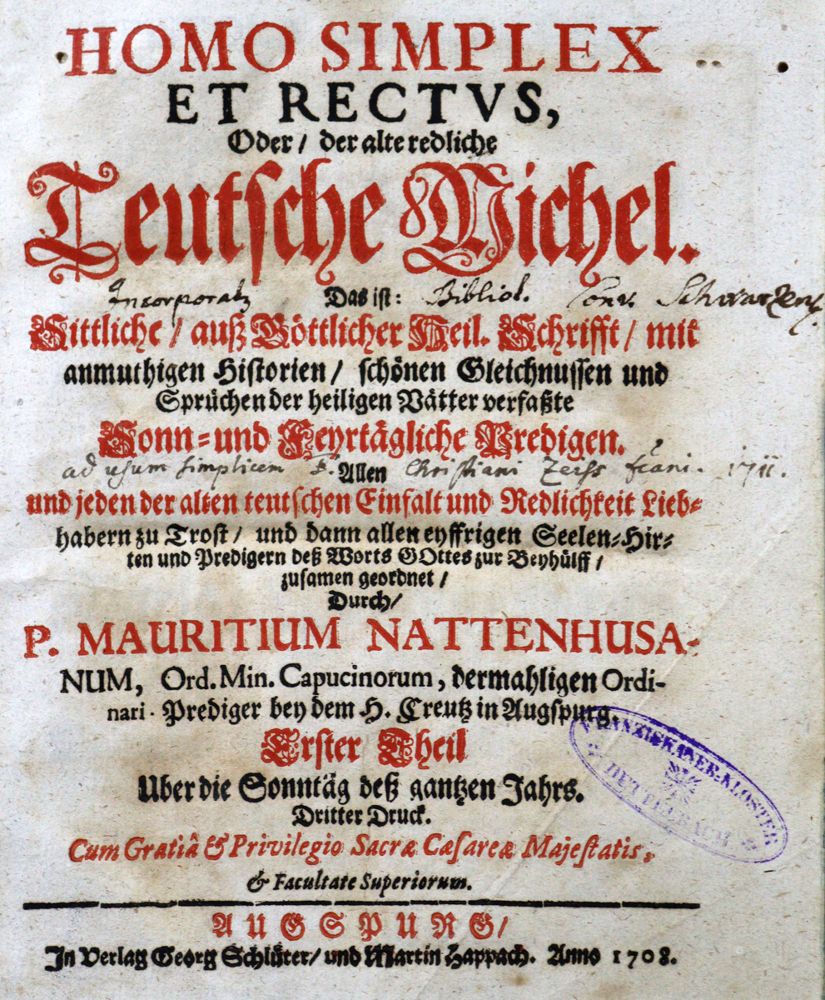 HOMO SIMPLEX
ET RECTVS,
Oder/ der alte redliche
Teutſche Michel.
Incorporatꝫ Das iſt: Bibliot. Conv.
Sittliche/ auß Göttlicher Heil. Schrifft/ mit
anmuthigen Hiſtorien/ ſchönen Gleichnuſſen und
Sprüchen der heiligen Vätter verfaßte
Sonn-und Feyrtägliche Predigen.
ad usum simplicem F. Allen Christiani 1711.
und jeden der alten teutſchen Einfalt und Redlichkeit Lieb-
habern zu Troſt/ und dann allen eyffrigen Seelen-Hir-
ten und Predigern deß Worts GOttes zur Beyhülff/
zuſamen geordnet/
Durch/
P. MAURITIUM NATTENHUSA-
NUM, Ord. Min. Capucinorum, dermahligen Ordi-
nari-Prediger bey dem H. Creutz in Augſpurg.
Erſter Theil
Uber die Sonntäg deß gantzen Jahrs.
Dritter Druck.
Cum Gratiâ & Privilegio Sacræ Cæſareæ Majeſtatis,
& Facultate Superiorum.
AUGSPURG/
In Verlag Georg Schlüter/ und Martin Happach. Anno 1708.
FRANZISKANER-KLOSTER
DETTELBACH